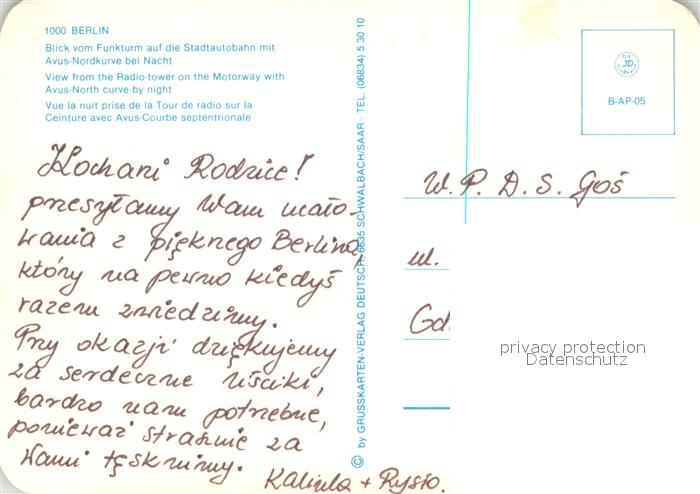 1000 BERLIN
Blick vom Funkturm auf die Stadtautobahn mit
Avus-Nordkurve bei Nacht
View from the Radio-tower on the Motorway with
Avus-North curve by night
Vue la nuit prise de la Tour de radio sur la
Ceinture avec Avus-Courbe septentrionale
Kochani Rodzice!
przesyłamy Wam ucało-
wania z pięknego Berlina,
który na pewno kiedyś
razem zwiedzimy.
Przy okazji dziękujemy
za serdeczne uściski,
bardzo nam potrzebne,
ponieważ strasznie za
Wami tęsknimy.
Kalinka + Rysio.
© by GRUSSKARTEN-VERLAG DEUTSCH, 6635 SCHWALBACH/SAAR · TEL. (06834) 5 30 10
JD
B-AP-05
W. P. D. S. Goś
ul.
Gd
privacy protection
Datenschutz